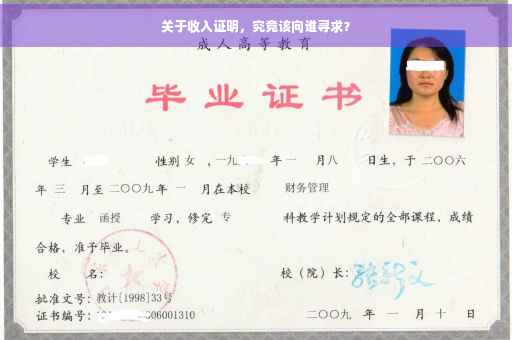 关于收入证明，究竟该向谁寻求?
成人高等教育
毕业证书
学生 性别 女 ，一九 年一 月八 日生，于二〇〇六
年 三 月至二〇〇九年 一 月在本校 财务管理
专业 函授 学习，修完 专 科教学计划规定的全部课程，成绩
合格，准予毕业。
校 名： 校（院）长：
批准文号：教计[1998]33号
证书编号： 06001310 二〇〇九 年 一 月 十 日